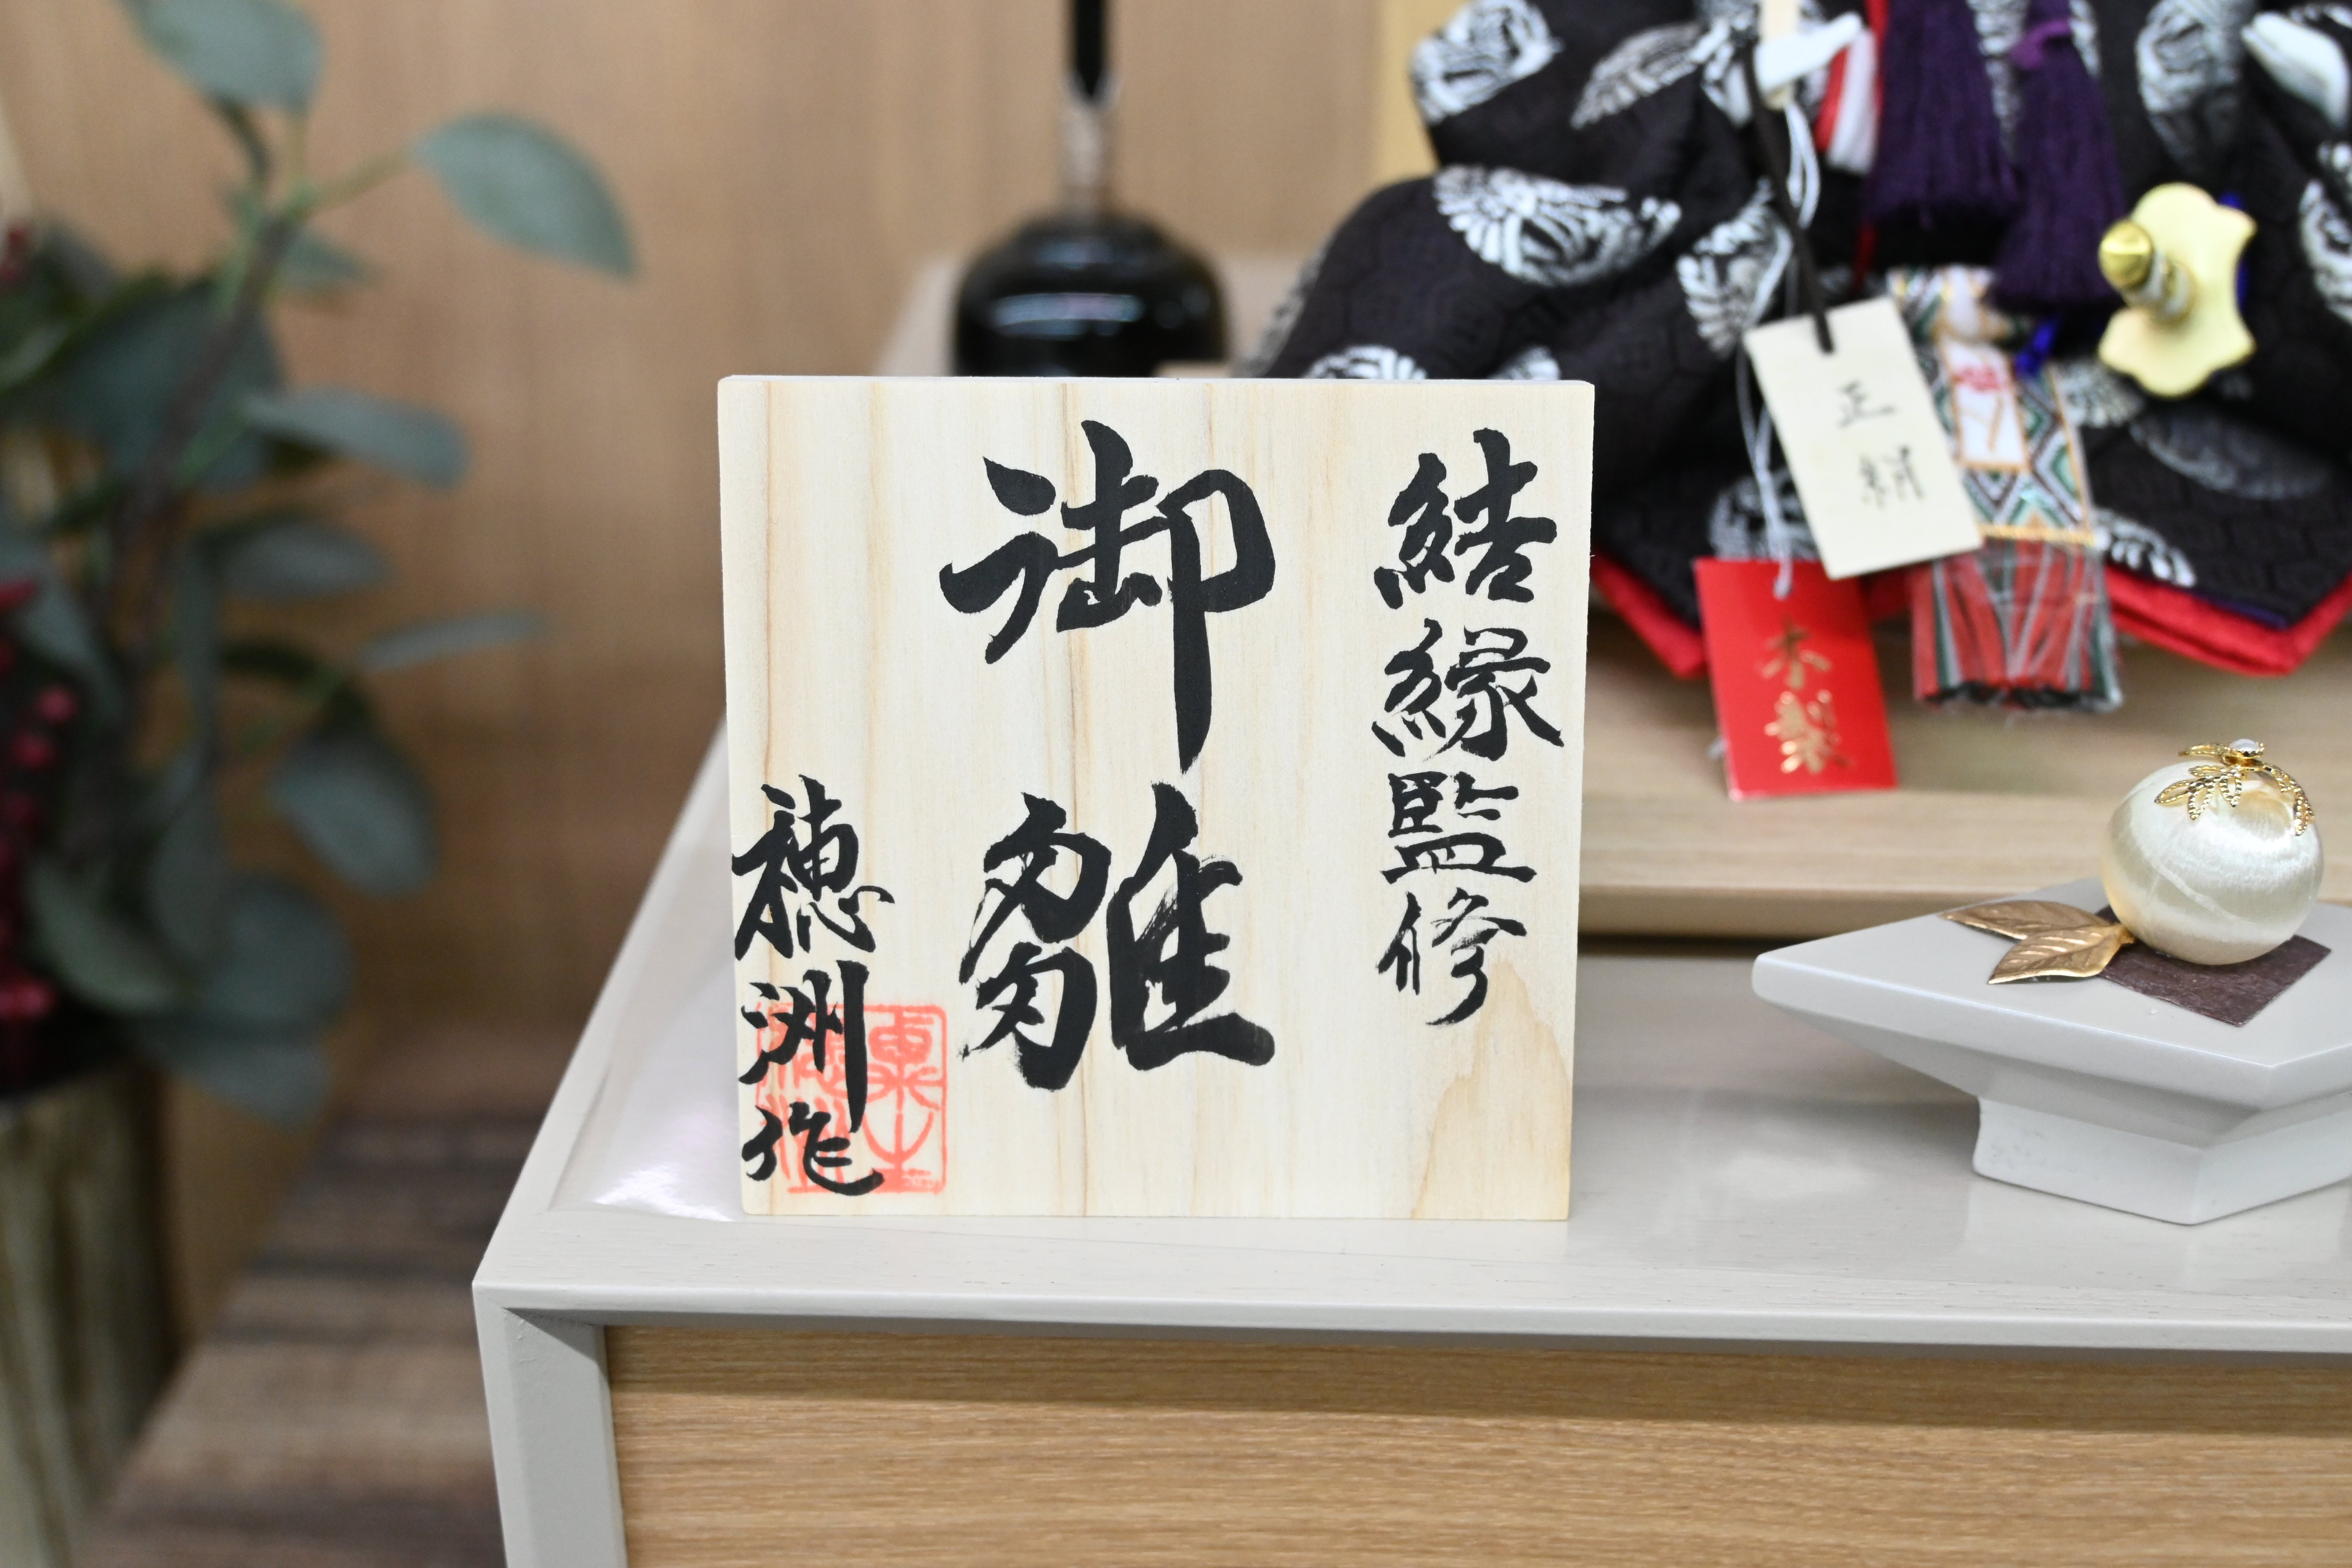 結縁監修
御雛
穂洲作
正絹
木製